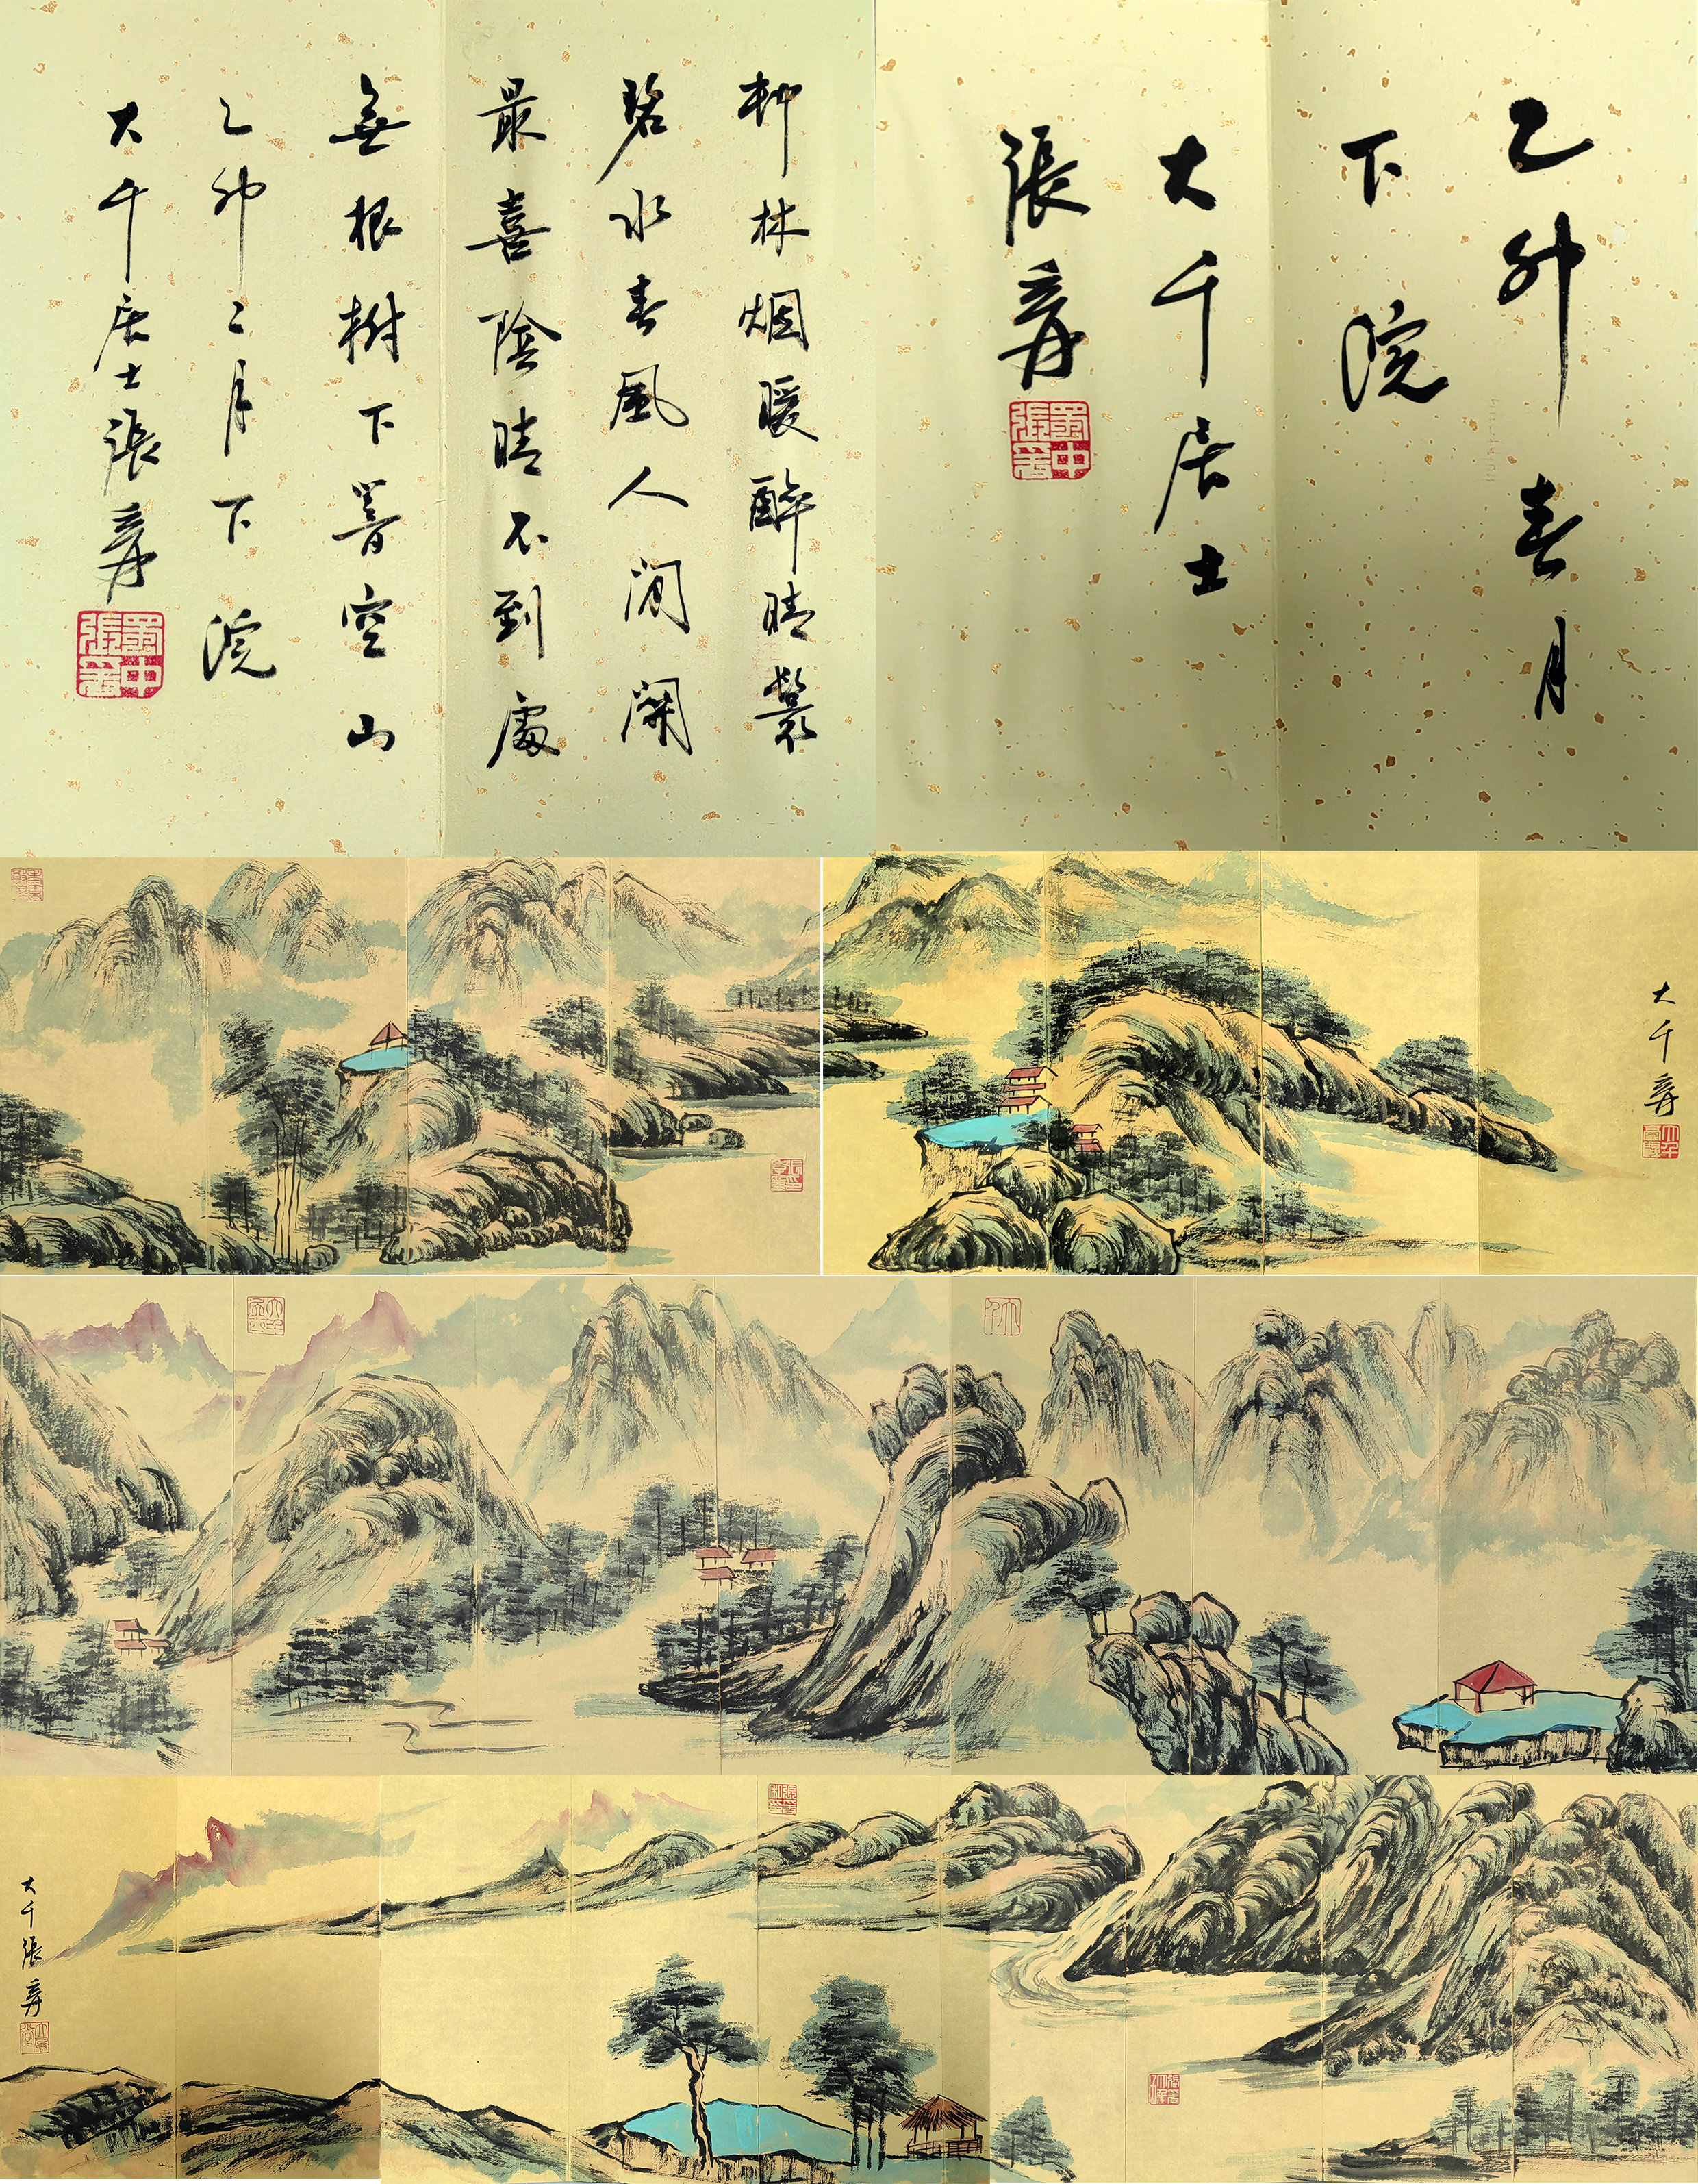 乙卯春月
下浣
大千居士
張爰
蜀中張爰
柳林烟暖醉晴鬟
碧水春風人間閑
最喜陰晴不到處
無根樹下着空山
乙卯二月下浣
大千居士張爰
蜀中張爰
大千爰
大千張爰